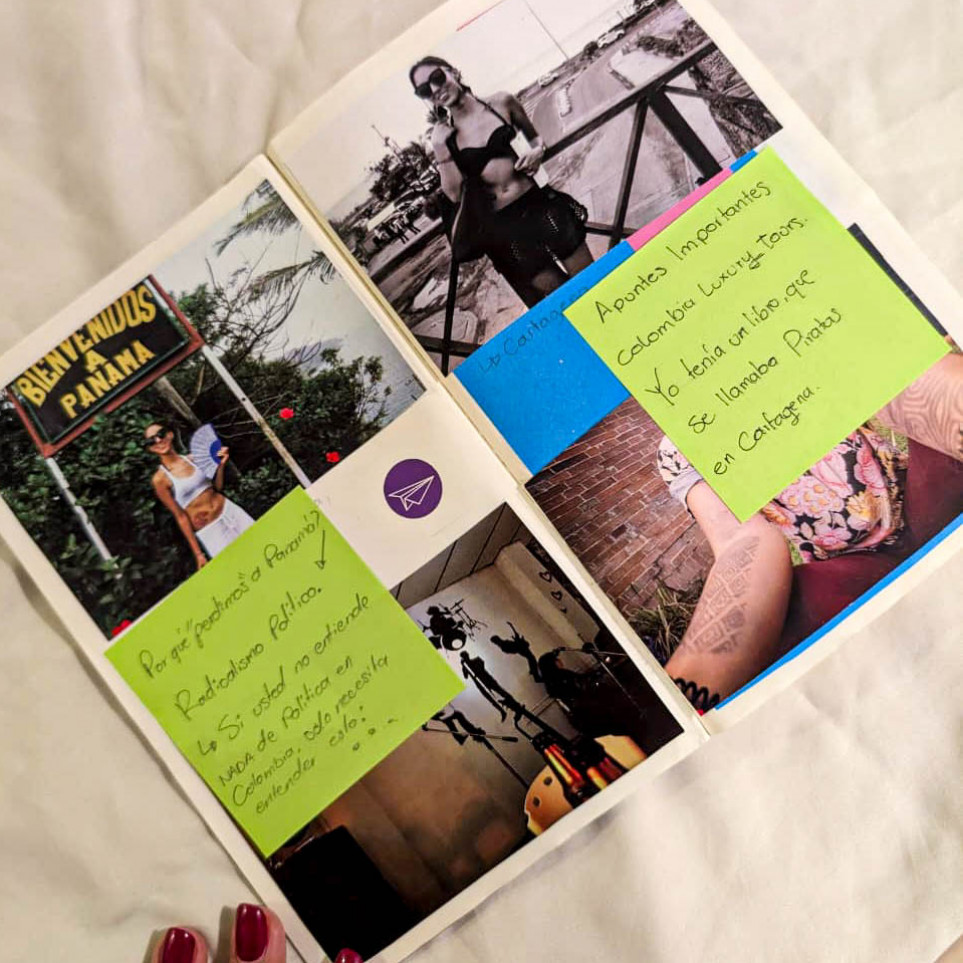 BIENVENIDOS
A
PANAMA
Por qué "perdimos" a Panamá?
Radicalismo Político.
↳ Si usted no entiende
NADA de Política en
Colombia, solo necesita
entender esto:
↳ Cartagena
Apuntes Importantes
Colombia Luxury Tours.
Yo tenía un libro, que
se llamaba Piratas
en Cartagena.